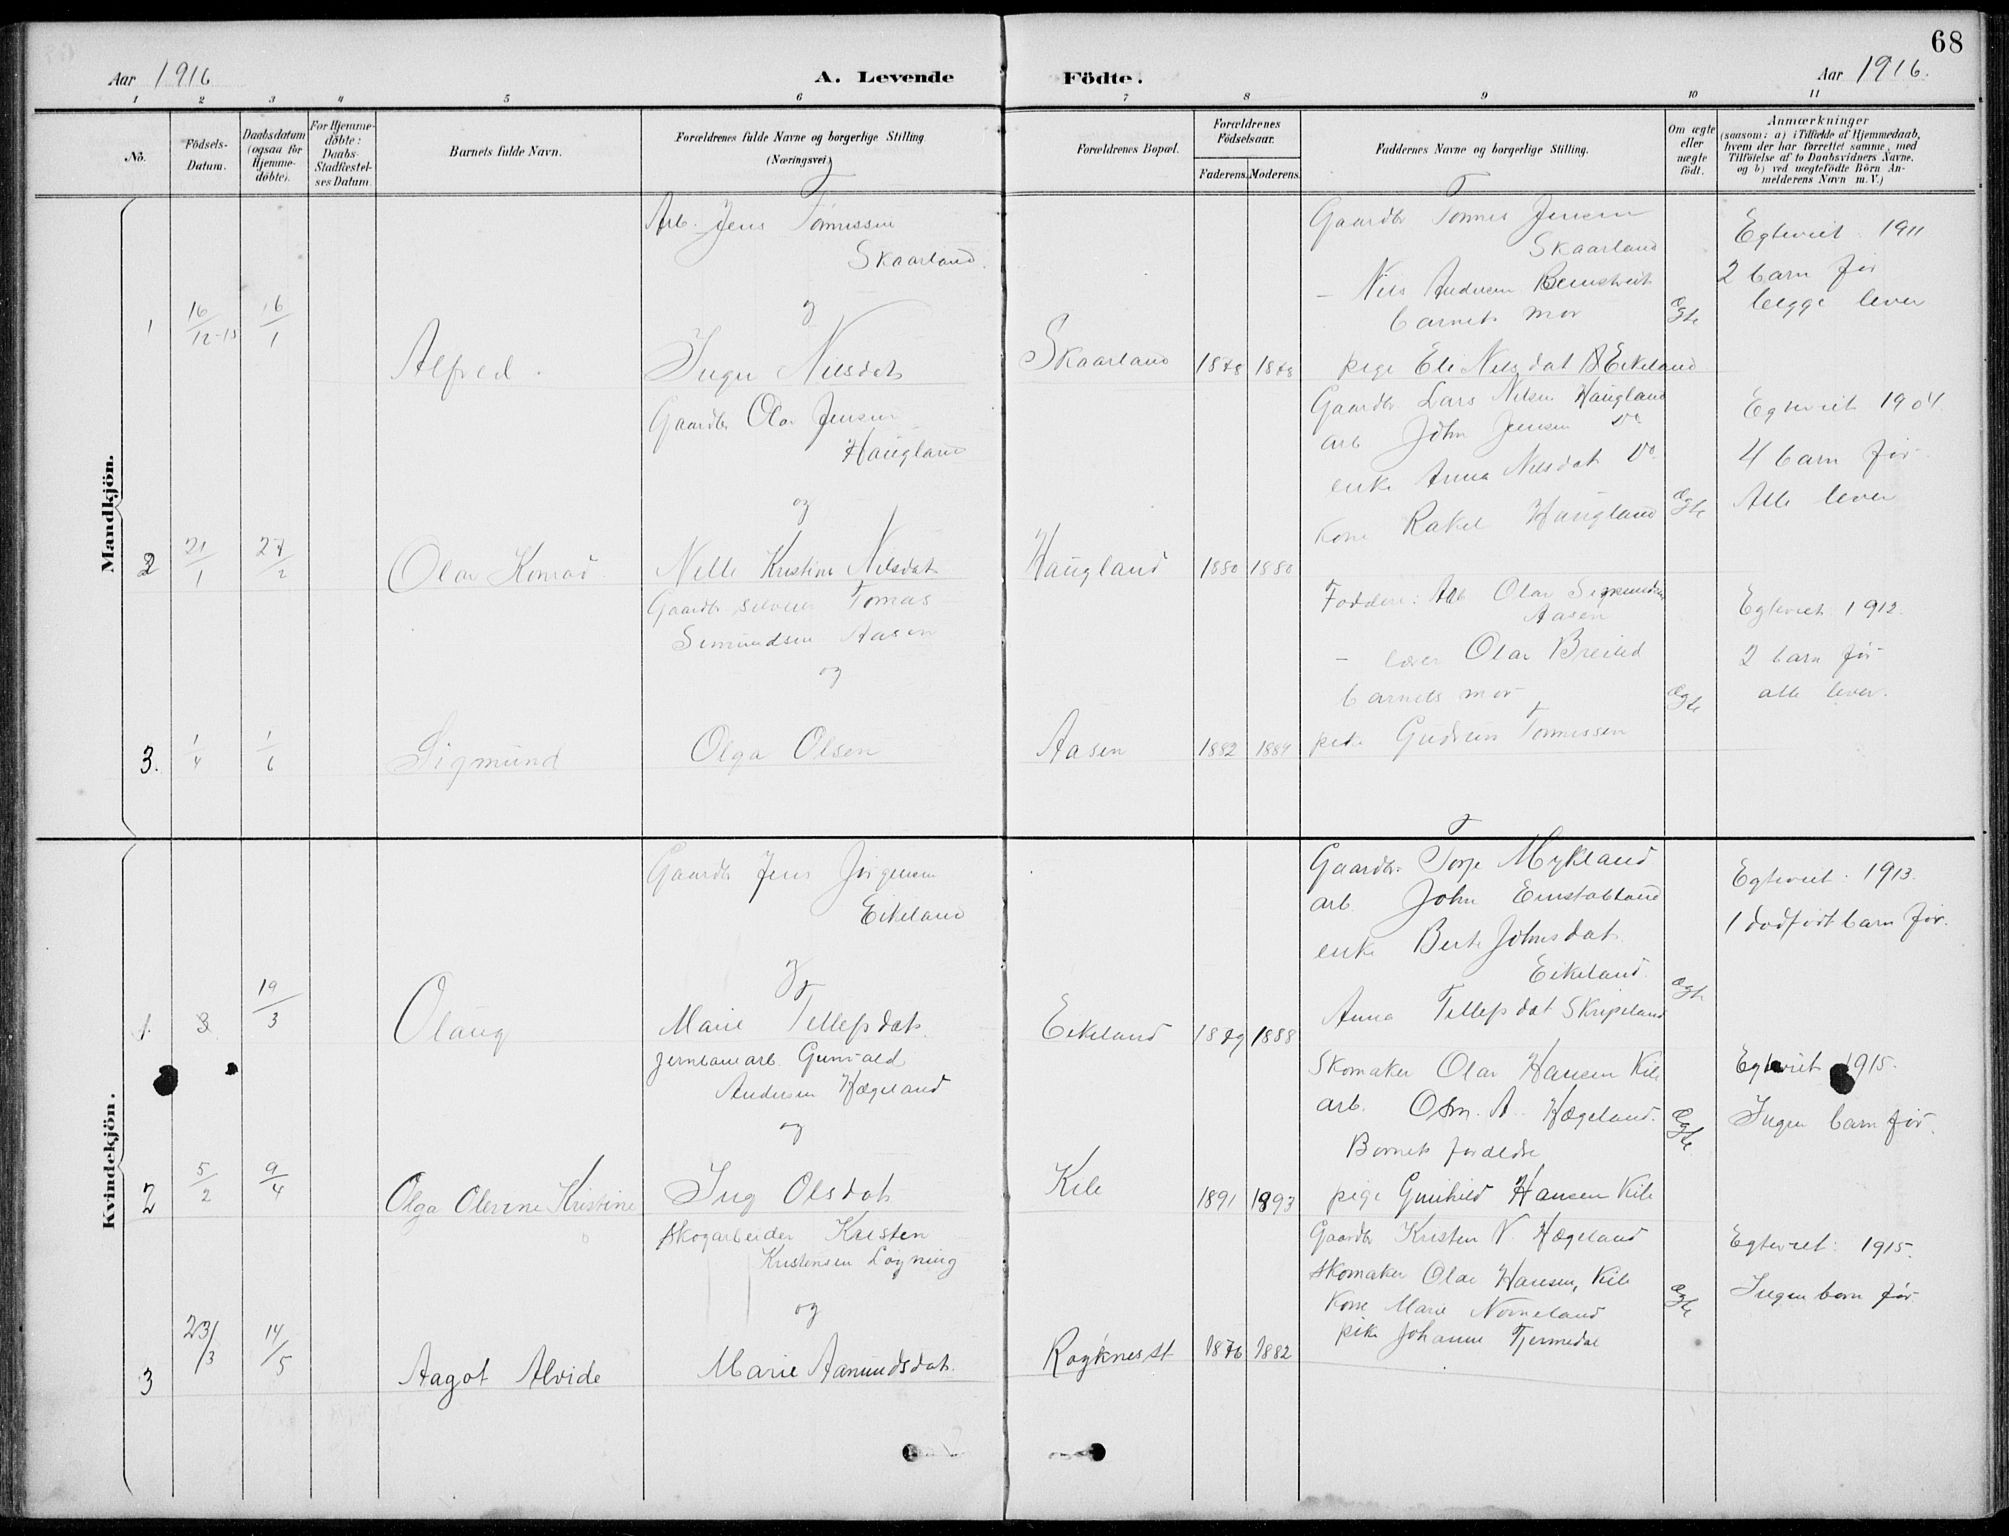 68
Aar 1916
A. Levende
Födte.
Aar 1916.
1 2 3 4 5 6 7 8 9 10 11
No.
Födsels-
Datum.
Daabsdatum
(ogsaa for
Hjemme-
döbte).
For Hjemme-
döbte:
Daabs-
Stadfæstel-
ses Datum
Barnets fulde Navn.
Forældrenes fulde Navne og borgerlige Stilling
(Næringsvei)
Forældrenes Bopæl.
Forældrenes
Födselsaar.
Faderens. Moderens.
Faddernes Navne og borgerlige Stilling.
Om ægte
eller
uægte
födt.
Anmærkninger
(saasom: a) i Tilfælde af Hjemmedaab,
hvem der har forrettet samme, med
Tilföielse af to Daabsvidners Navne,
og b) ved uægtefödte Börn An-
melderens Navn m. V.)
Mandkjön.
1
16/12-15
16/1
Alfred.
Arb. Jens Tønnessen
Skaarland.
og
Inger Nilsdat
Skaarland
1878 1878
Gaardbr Tønnes Jensen
Skaarland
- Nils Andersen
barnets mor
pige Eli Nilsdat Eikeland
Ægte
Egteviet 1911
2 barn før
begge lever
2
21/1
27/2
Olav Konrad
Gaardbr Olav Jensen
Haugland
og
Nelle Kristine Nilsdat
Haugland
1880 1880
Gaardbr Lars Nilsen Haugland
arb John Jensen Do
enke Anna Nilsdat Do
kone Rakel Haugland
Ægte
Egteviet 1904.
4 barn før
Alle lever
3.
1/4
1/6
Sigmund
Gaardbr selveier Tomas
Simundsen Aasen
og
Olga Olsen
Aasen
1882 1889
Faddere: Arb Olav Sigmundsen
Aasen
- lærer Olav Breilid
barnets mor
pike Gudrun Tønnessen
Ægte
Egteviet 1912.
2 barn før
alle lever.
Kvindekjön.
1.
3
19/3
Olaug
Gaardbr Jens Jørgensen
Eikeland
og
Marie Tellefsdat.
Eikeland
1879 1888
Gaardbr. Torje Mykland
arb. John
enke Berte Johnsdat
Eikeland.
Anna Tellefsdat Skripeland
Ægte
Egteviet 1913.
1 dødfødt barn før.
2
5/2
9/4
Olga Olerine Kristine
Jernbanearb. Gunvald
Andersen Hægeland
og
Ing Olsdat
Kile
1891 1893
Skomaker Olav Hansen Kile
arb. Osm. A. Hægeland.
Barnets foreldre
pige Gunhild Hansen Kile
Ægte
Egteviet 1915.
Ingen barn før.
3
23/3
14/5
Aagot Alvide
Skogarbeider Karsten
Kristensen Løyning
og
Marie Aamundsdat.
Røyknes st
1876 1882
Gaardbr Kristen N. Hægeland
Skomaker Olav Hansen, Kile
Kone Marie
pike Johanne
Ægte
Egteviet: 1915.
Ingen barn før